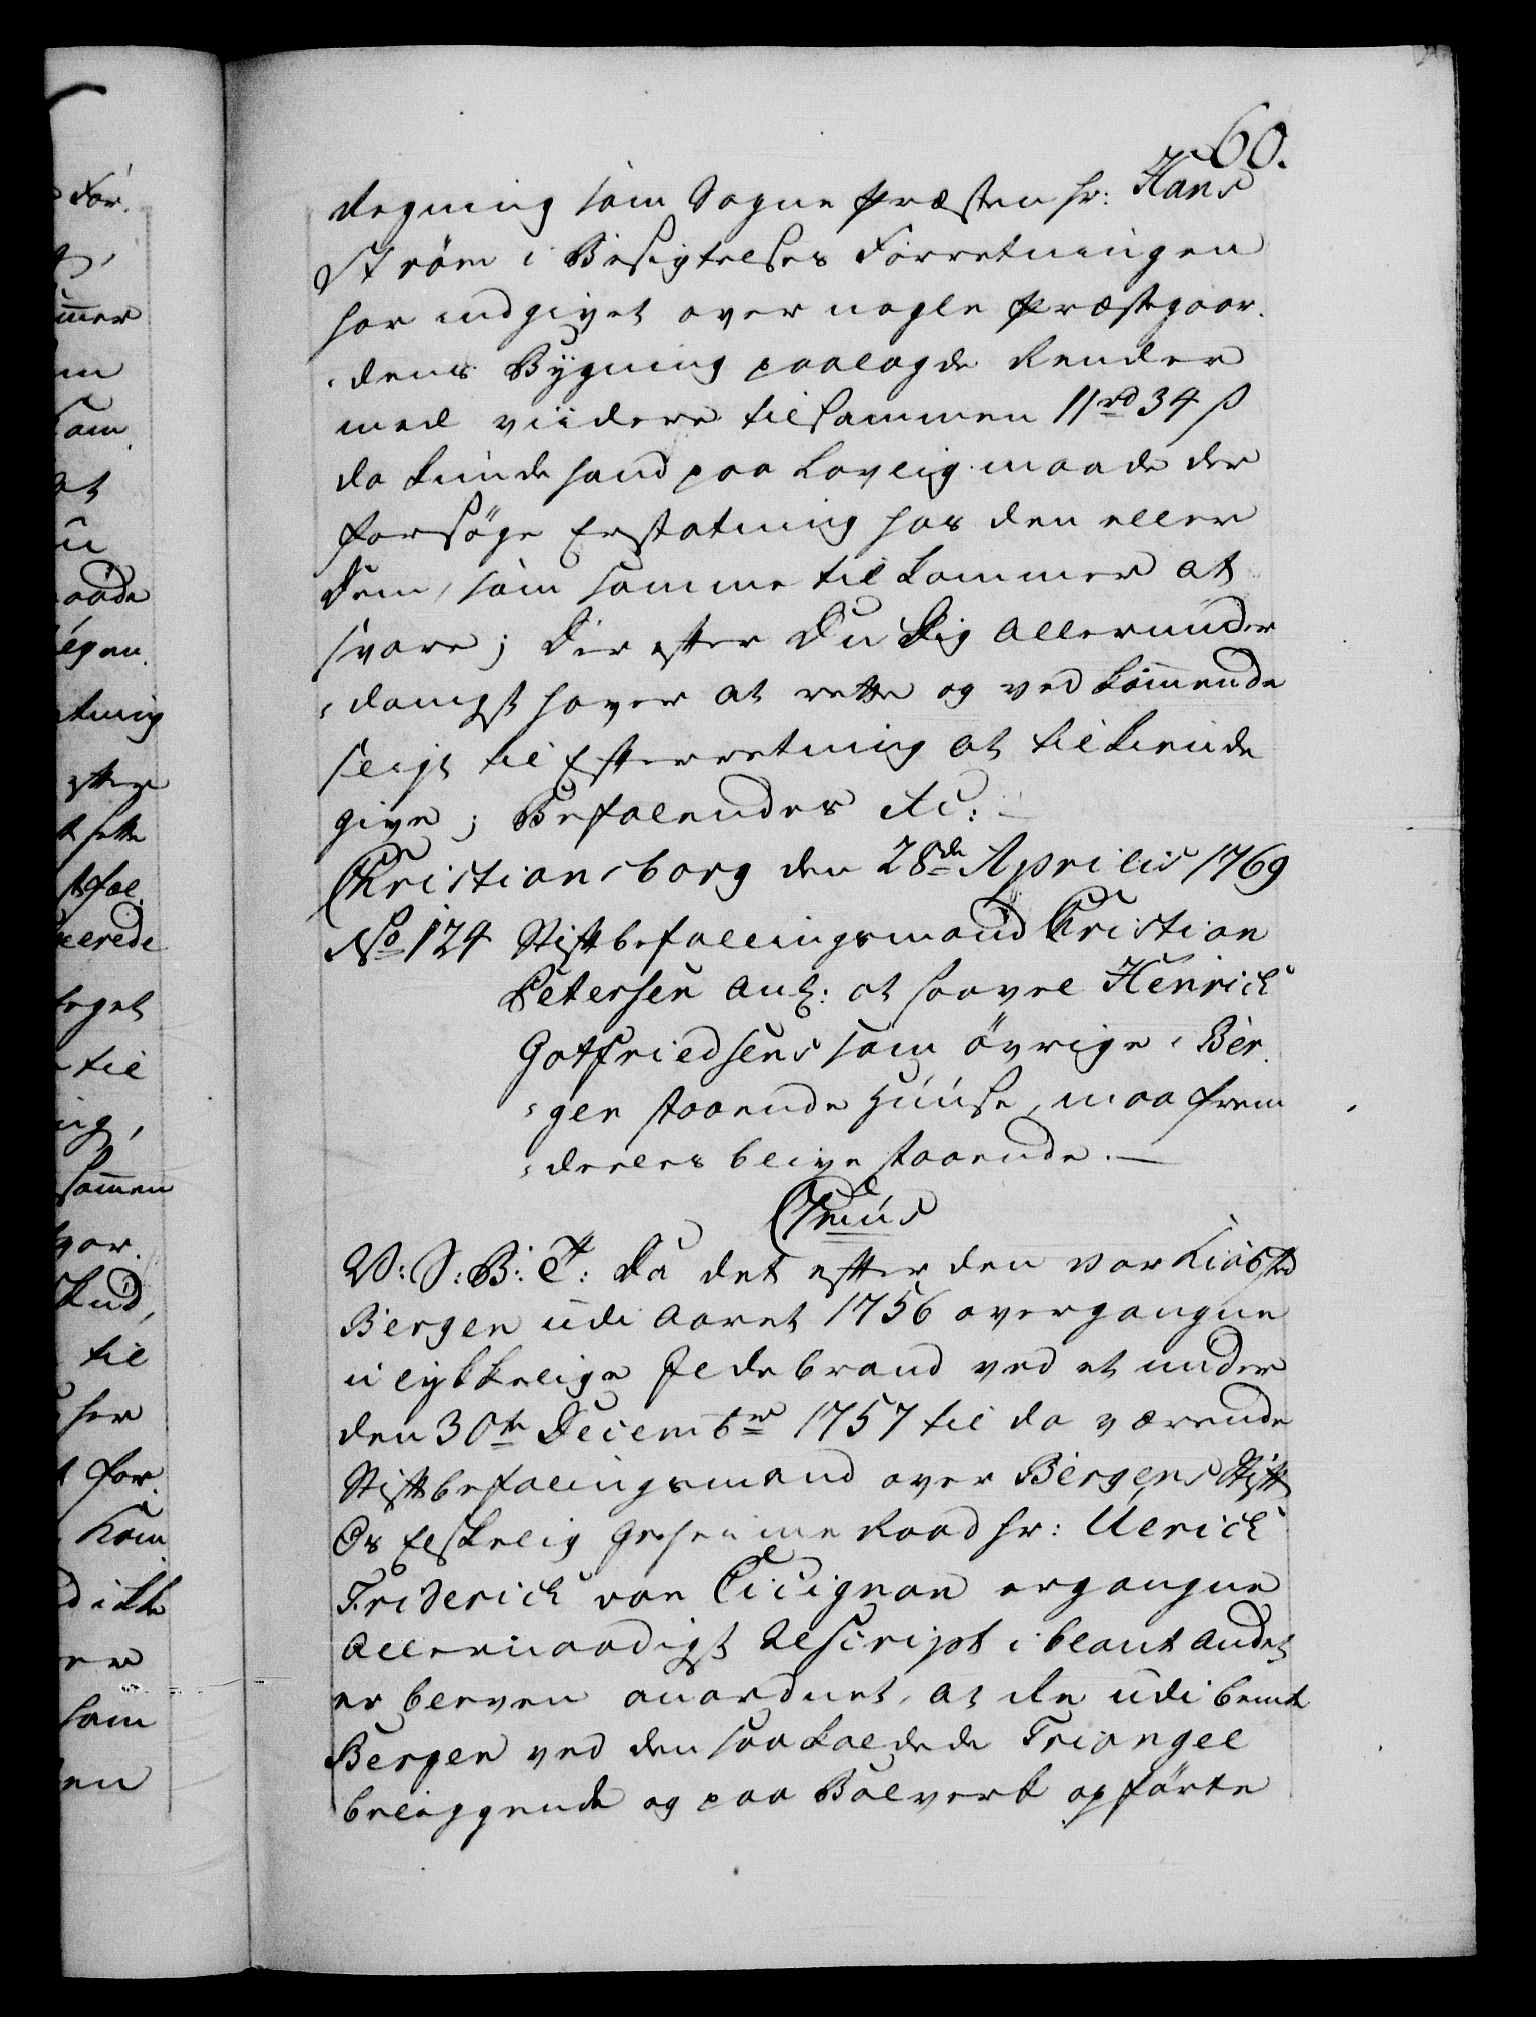 60.
Regning som Sogne Præsten hr: Hans
Strøm i Besigtelses Forretningen
har indgivet over nogle Præstegaar¬
dens Bÿgning paalagde Render
med viidere tilsammen 11 rd 34 s
da kunde hand paa Lovlig maade der
forsöge Erstatning hos den eller
Dem, som samme tilkommer at
svare; Derefter Du Dig Allerunder
„danigst haver at rette og vedkommende
sligt til Efterretning at tilkiende
give; Befalendes etc:
Christiansborg den 28de Aprilis 1769
No 124 Stiftbefallingsmand Christian
Petersen anl: at saavel Henrich
Gotfriedsens som övrige i Ber¬
„gen staaende Huuse, maa frem
„deeles blive staaende.
C7mus
V: S: B: T: Da det efter den vor Kiöbsted
Bergen udi Aaret 1756 overgangne
ulÿkkelige Ildebrand ved et under
den 30te Decembr 1757 til da værende
Stiftbefalingsmand over Bergens Stift
Os Elskelig Geheime Raad hr: Ulrich
Friderich von Cicignon ergangne
Allernaadigst Rescript iblant andet
er bleven anordnet, at de udi bemte
Bergen ved den saa kaldede Triangel
beliggende og paa Bolverk opförte